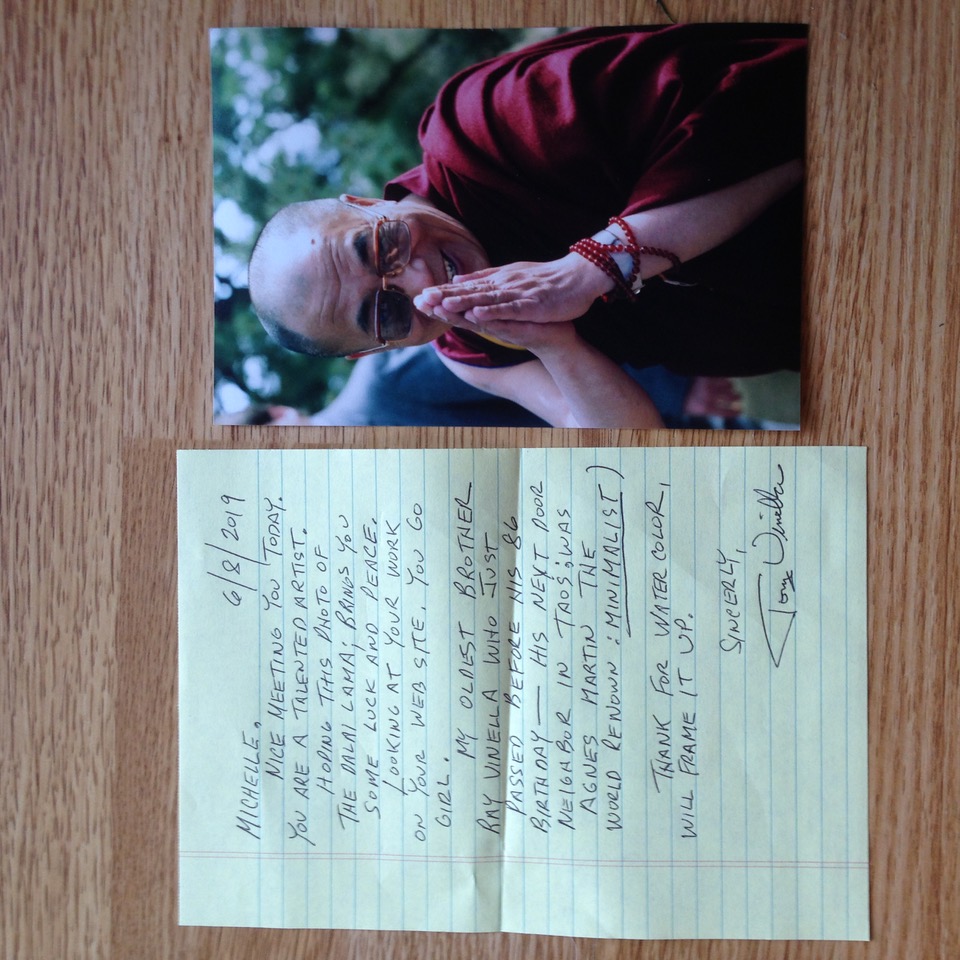 6/8/2019
MICHELLE,
NICE MEETING YOU TODAY.
YOU ARE A TALENTED ARTIST.
HOPING THIS PHOTO OF
THE DALAI LAMA; BRINGS YOU
SOME LUCK AND PEACE.
LOOKING AT YOUR WORK
ON YOUR WEB SITE. YOU GO
GIRL.
MY OLDEST BROTHER
RAY VINELLA WHO JUST
PASSED BEFORE HIS 86
BIRTHDAY — HIS NEXT DOOR
NEIGHBOR IN TAOS; WAS
AGNES MARTIN THE
WORLD RENOWN : MINIMALIST)
THANK FOR WATERCOLOR,
WILL FRAME IT UP.
SINCERLY,
Tony Vinella